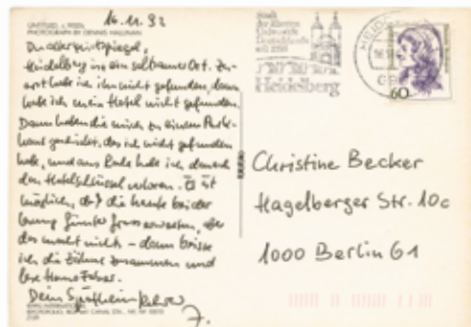 16.11.92
UNTITLED, v. PISEN,
PHOTOGRAPH BY DENNIS HALLINAN
Du alter
Heidelberg ist ein seltsamer Ort. Zu-
erst habe ich ihn nicht gefunden, dann
habe ich mein Hotel nicht gefunden.
Dann haben die mich zu einem Park-
haus geschickt, das ich nicht gefunden
habe, und am Ende habe ich danach
den Hotelschlüssel verloren. Es ist
möglich, daß die heute bei der
Lesung Günter Grass erwarten, aber
das macht nichts – dann beisse
ich die Zähne zusammen und
lese Hans Faber.
Dein
J.
Stadt
der ältesten
Universität
Deutschlands
seit 1386
Heidelberg
HEIDELBERG
60
Christine Becker
Hagelberger Str. 10c
1000 Berlin 61